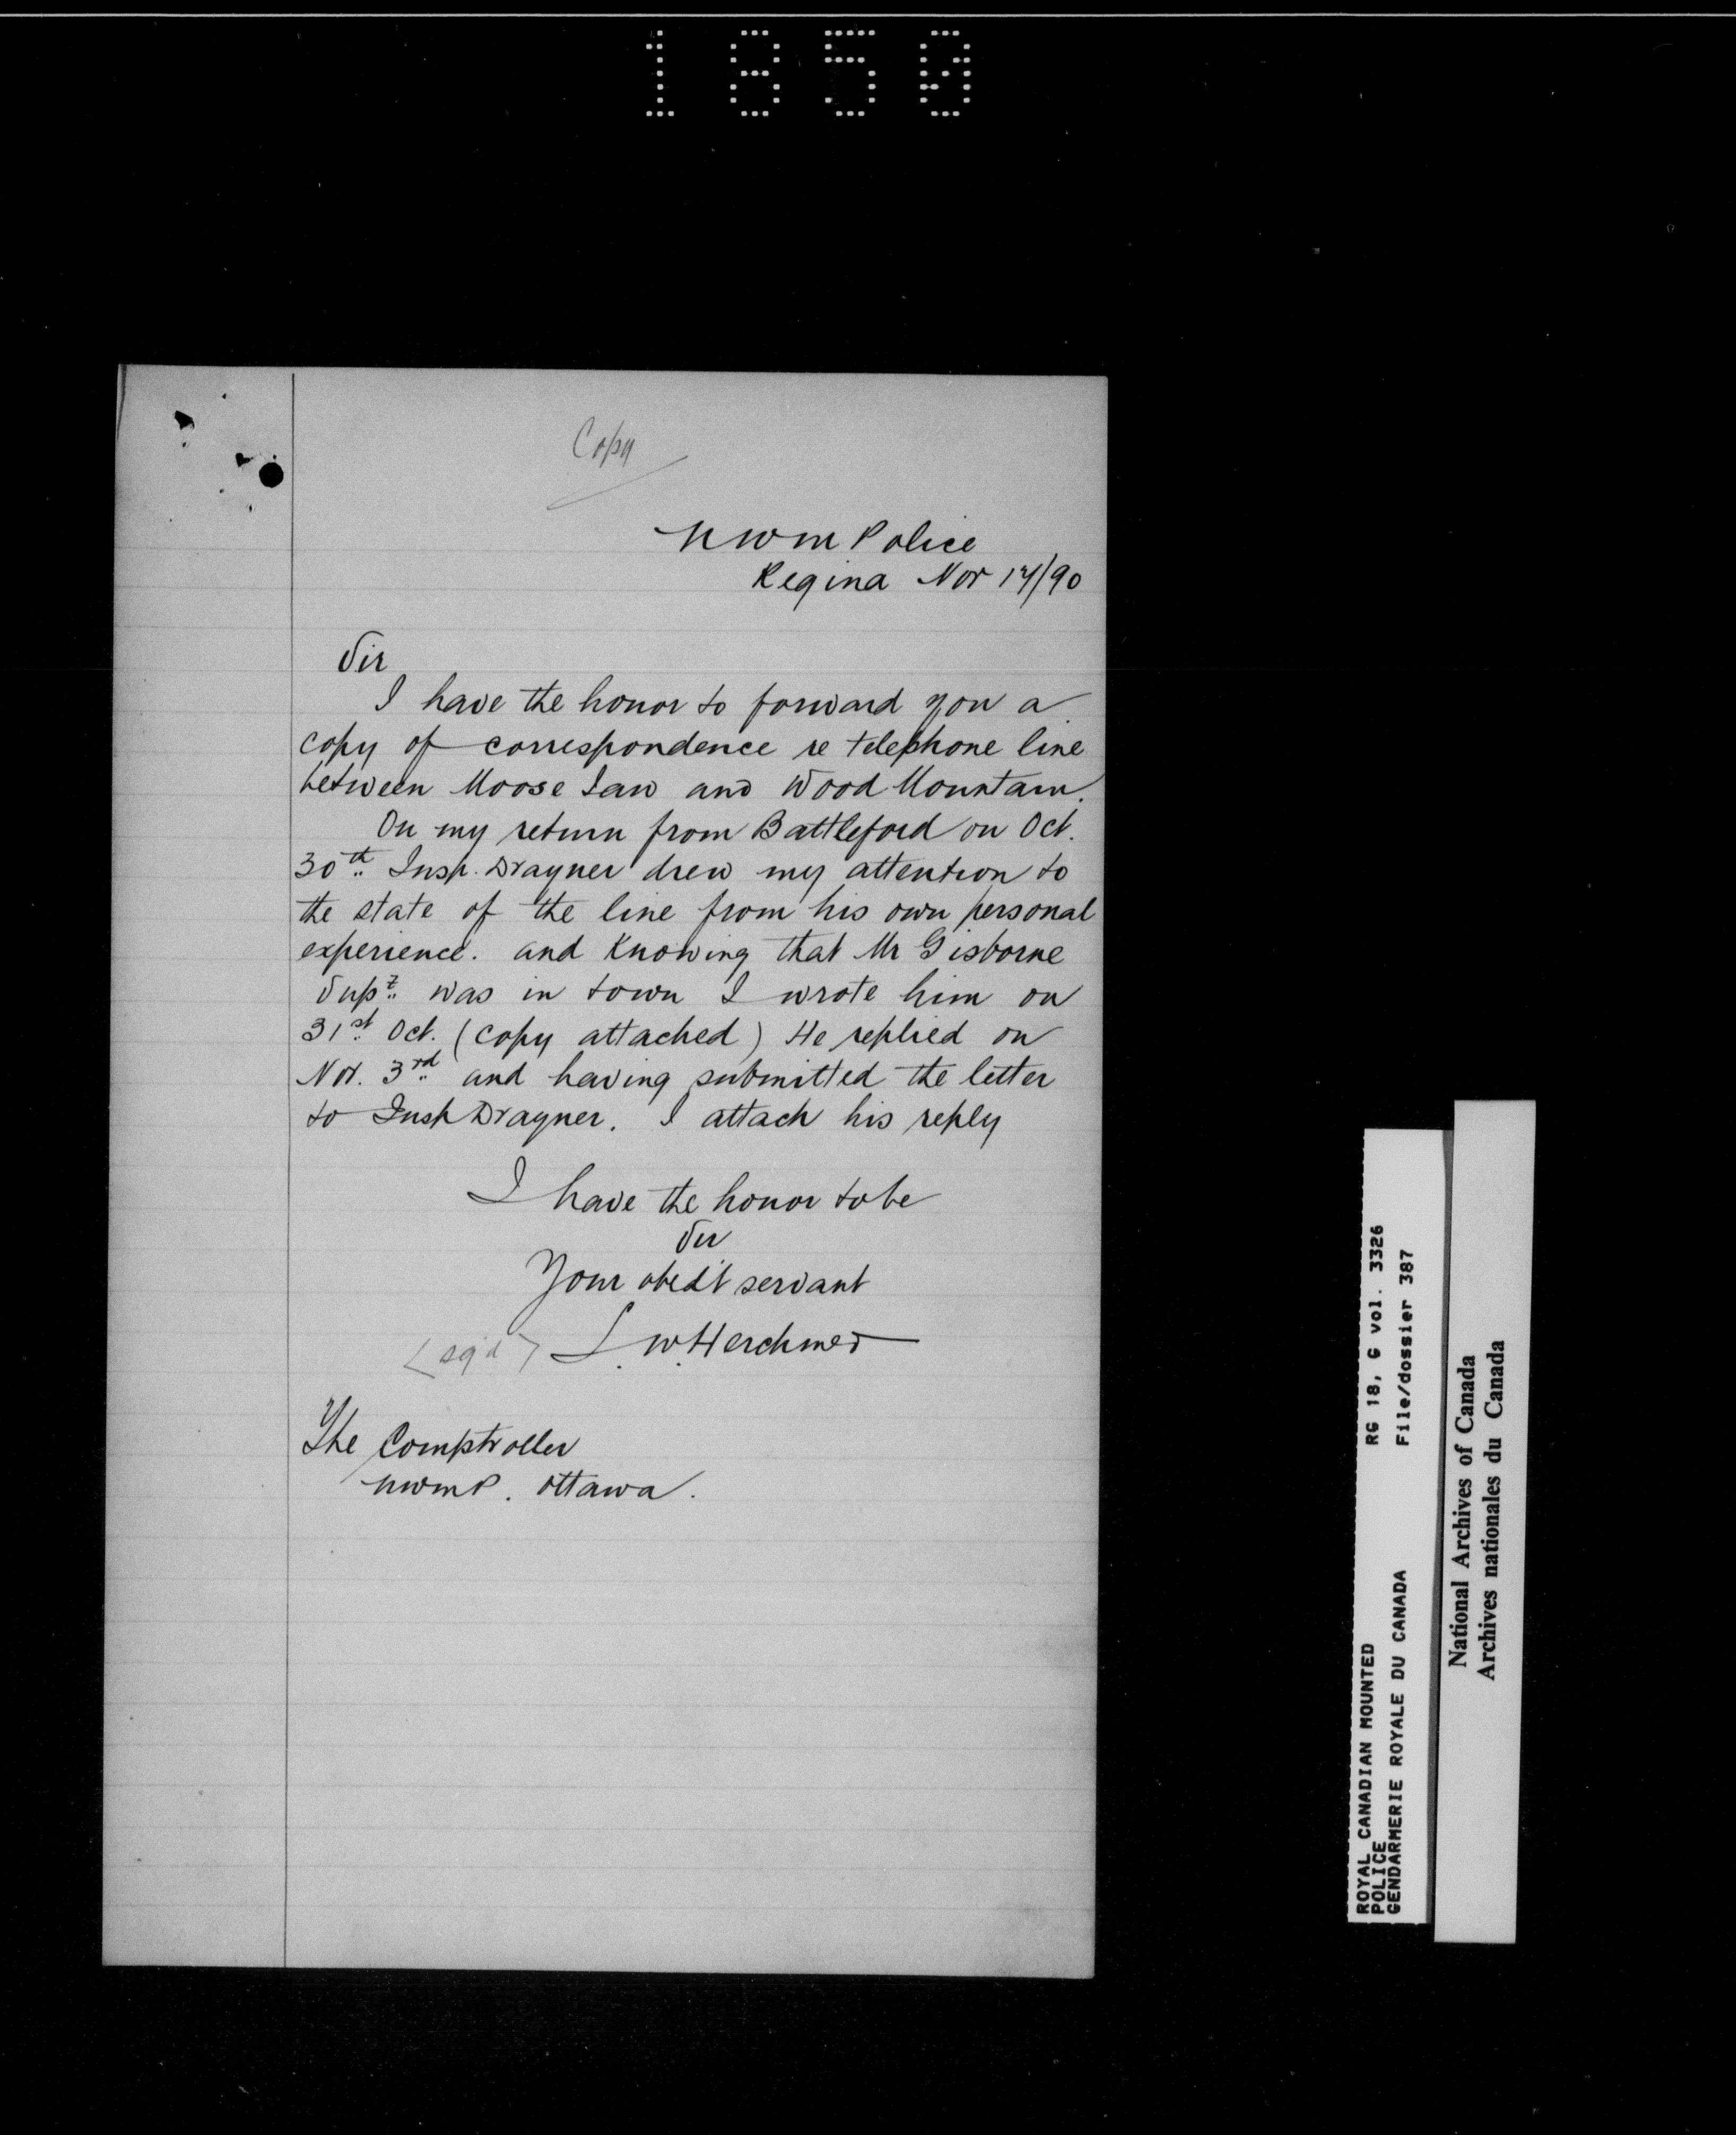 1850
Copy
NWM Police
Regina Nov 14/90
Sir
I have the honor to forward you a
copy of correspondence re telephone line
between Moose Jaw and Wood Mountain.
On my return from Battleford on Oct.
30th Insp. Drayner drew my attention to
the state of the line from his own personal
experience. and Knowing that Mr Gisborne
Supt. was in town I wrote him on
31st Oct. (copy attached) He replied on
Nov. 3rd and having submitted the letter
to Insp Drayner. I attach his reply
I have the honor to be
Sir
Your obed't servant
(sg'd) L. W. Herchmer
The Comptroller
NWMP. Ottawa.
ROYAL CANADIAN MOUNTED
POLICE
GENDARMERIE ROYALE DU CANADA
RG 18, G vol. 3326
File/dossier 387
National Archives of Canada
Archives nationales du Canada